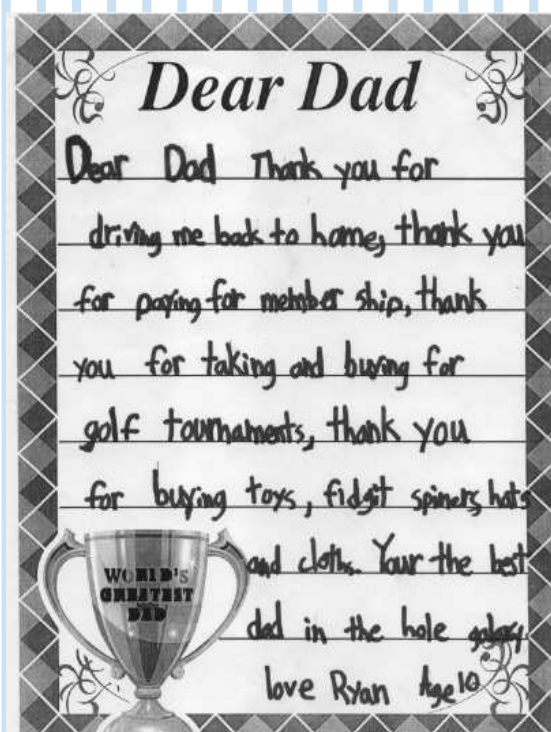 Dear Dad
Dear Dad Thank you for
driving me back to home, thank you
for paying for member ship, thank
you for taking and buying for
golf tournaments, thank you
for buying toys, fidgit spiners, hats
and cloths. Your the best
WORLD'S
GREATEST
DAD
dad in the hole galaxy.
love Ryan Age 10